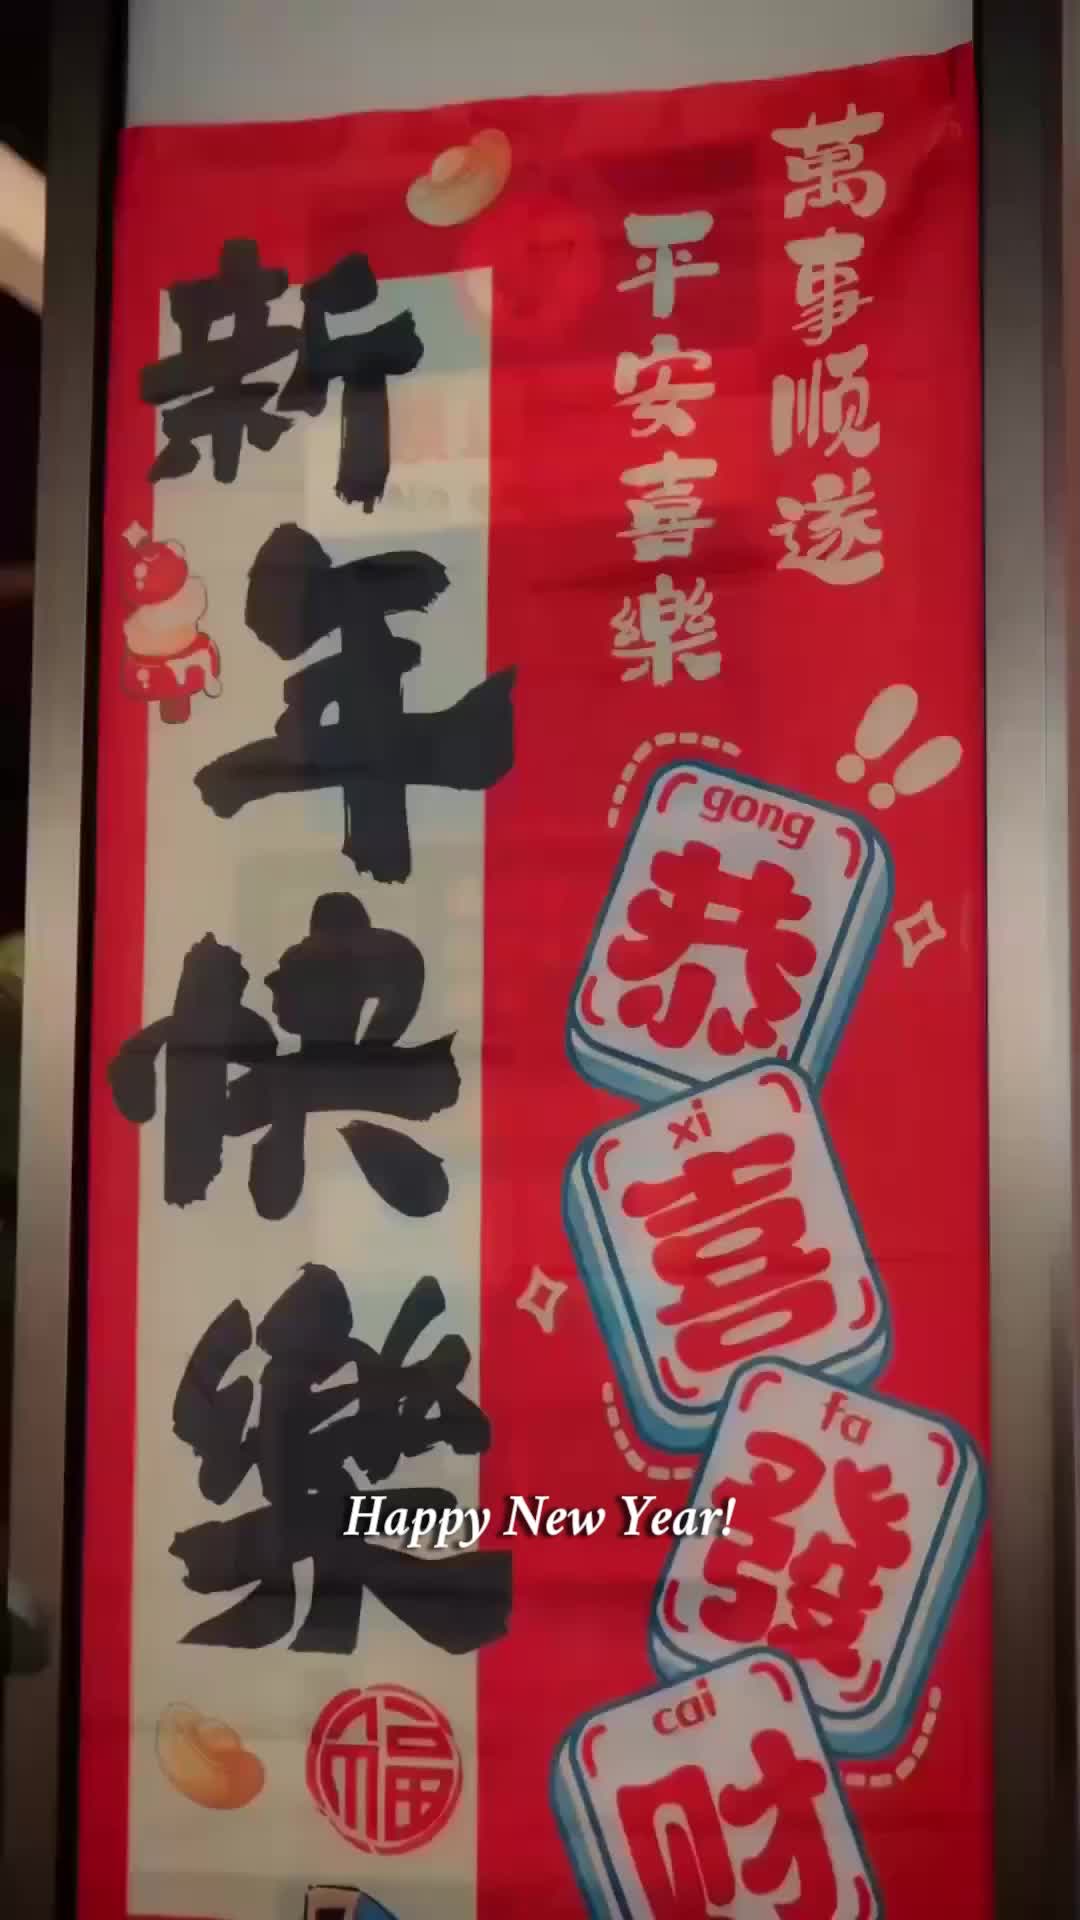 萬事顺遂
平安喜樂
新年快樂
gong
恭
xi
喜
fa
發
cai
财
福
Happy New Year!